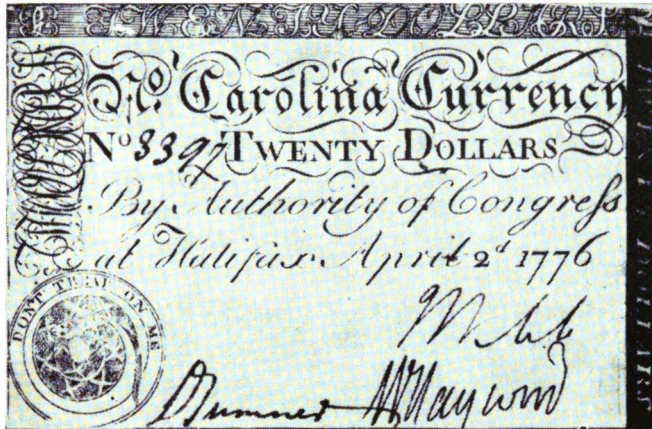 TWENTY DOLLARS
No. Carolina Currency
No 3397 TWENTY DOLLARS
By Authority of Congress
at Halifax April 2d 1776
DONT TREAD ON ME
Webb
JSumner WHaywood
TWENTY DOLLARS